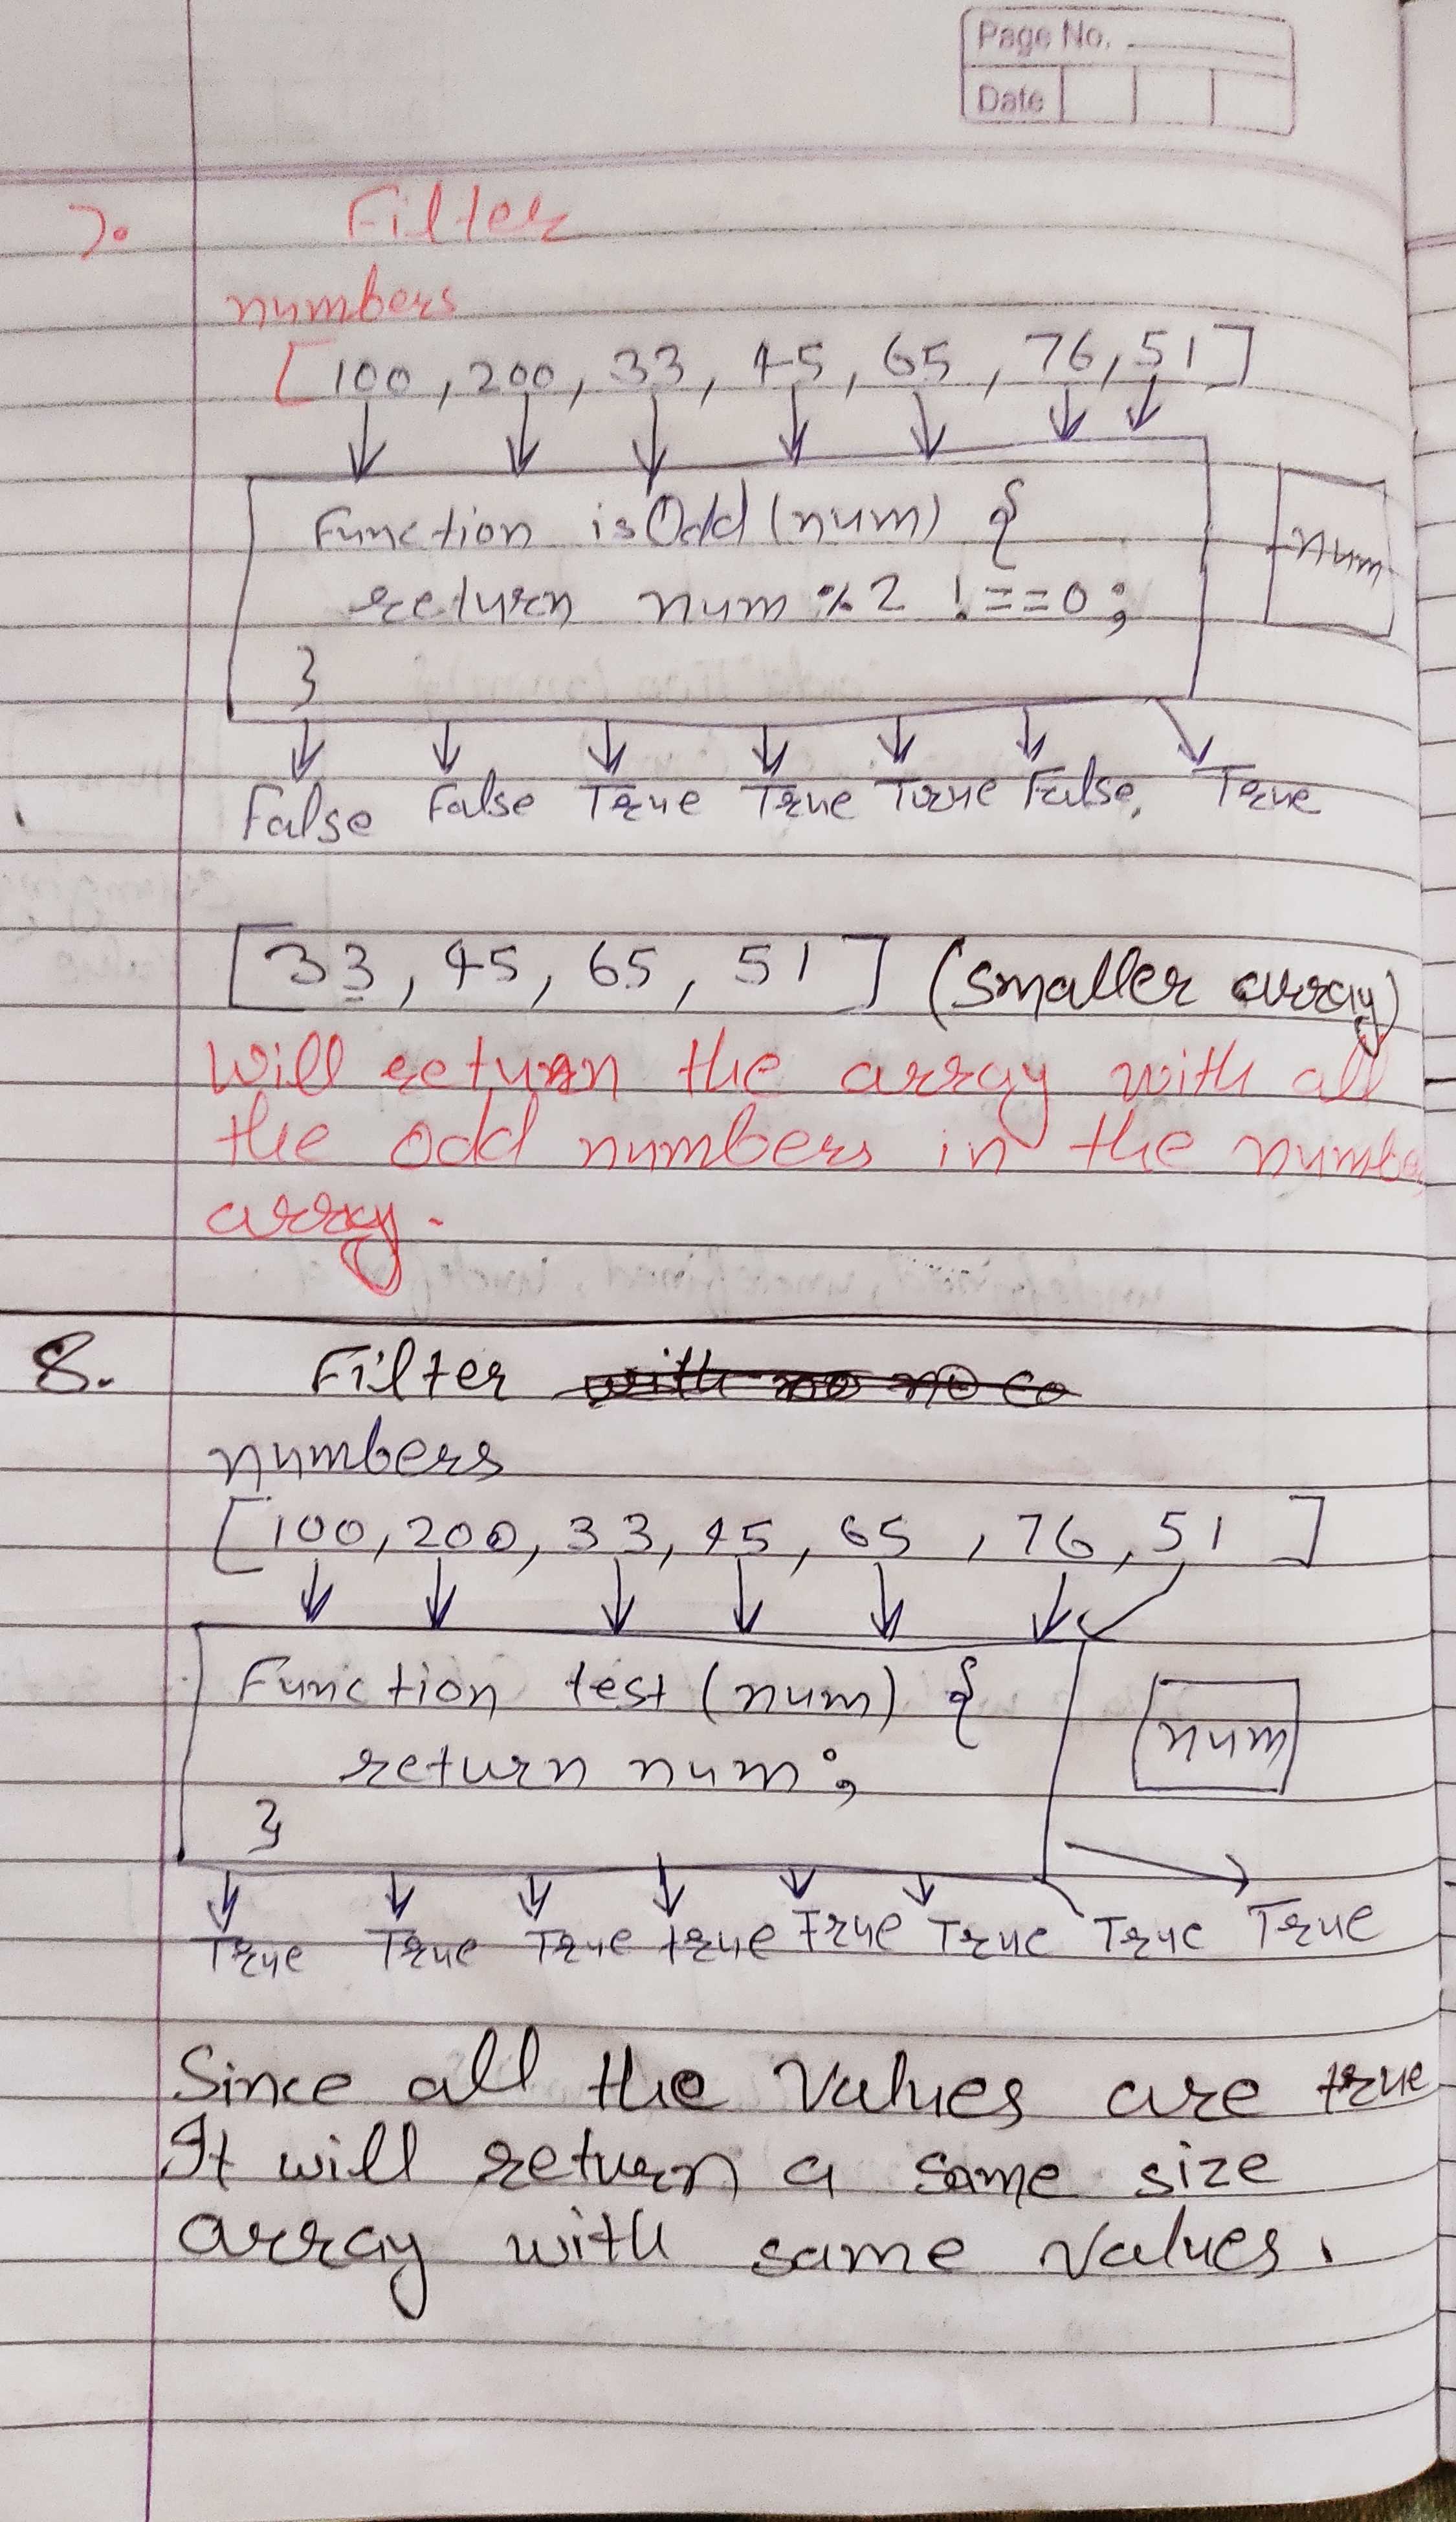 Page No.
Date
7. Filter
numbers
[100, 200, 33, 45, 65, 76, 51]
Function isOdd (num) {
num
return num % 2 !==0;
}
False False True True True False, True
[33, 45, 65, 51] (smaller array)
Will return the array with all
the odd numbers in the numbe
array.
8. Filter with no no co
numbers
[100, 200, 33, 45, 65, 76, 51]
Function test (num) {
num
return num;
}
True True True true True True True True
Since all the Values are true
It will return a same size
array with same values.